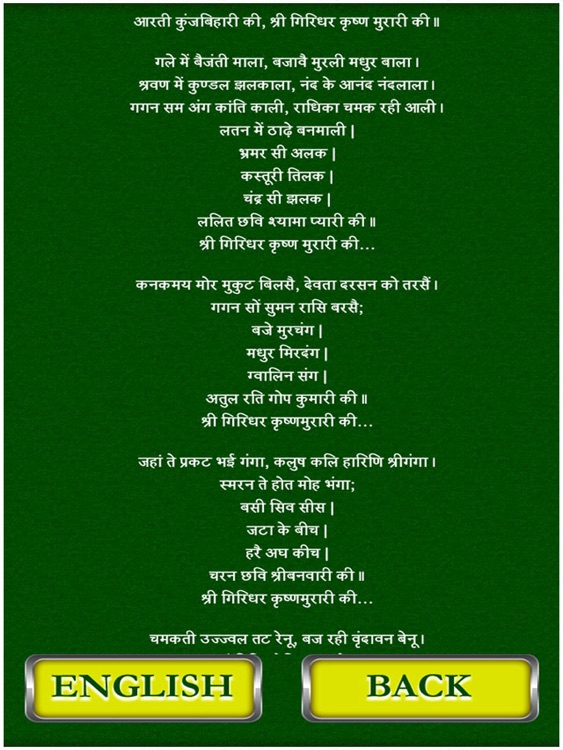 आरती कुंजबिहारी की, श्री गिरिधर कृष्ण मुरारी की॥
गले में बैजंती माला, बजावै मुरली मधुर बाला।
श्रवण में कुण्डल झलकाला, नंद के आनंद नंदलाला।
गगन सम अंग कांति काली, राधिका चमक रही आली।
लतन में ठाढ़े बनमाली|
भ्रमर सी अलक|
कस्तूरी तिलक|
चंद्र सी झलक|
ललित छवि श्यामा प्यारी की॥
श्री गिरिधर कृष्ण मुरारी की...
कनकमय मोर मुकुट बिलसै, देवता दरसन को तरसैं।
गगन सों सुमन रासि बरसै;
बजे मुरचंग|
मधुर मिरदंग|
ग्वालिन संग|
अतुल रति गोप कुमारी की॥
श्री गिरिधर कृष्णमुरारी की...
जहां ते प्रकट भई गंगा, कलुष कलि हारिणि श्रीगंगा।
स्मरन ते होत मोह भंगा;
बसी सिव सीस|
जटा के बीच|
हरै अघ कीच|
चरन छवि श्रीबनवारी की॥
श्री गिरिधर कृष्णमुरारी की...
चमकती उज्ज्वल तट रेनू, बज रही वृंदावन बेनू।
ENGLISH
BACK